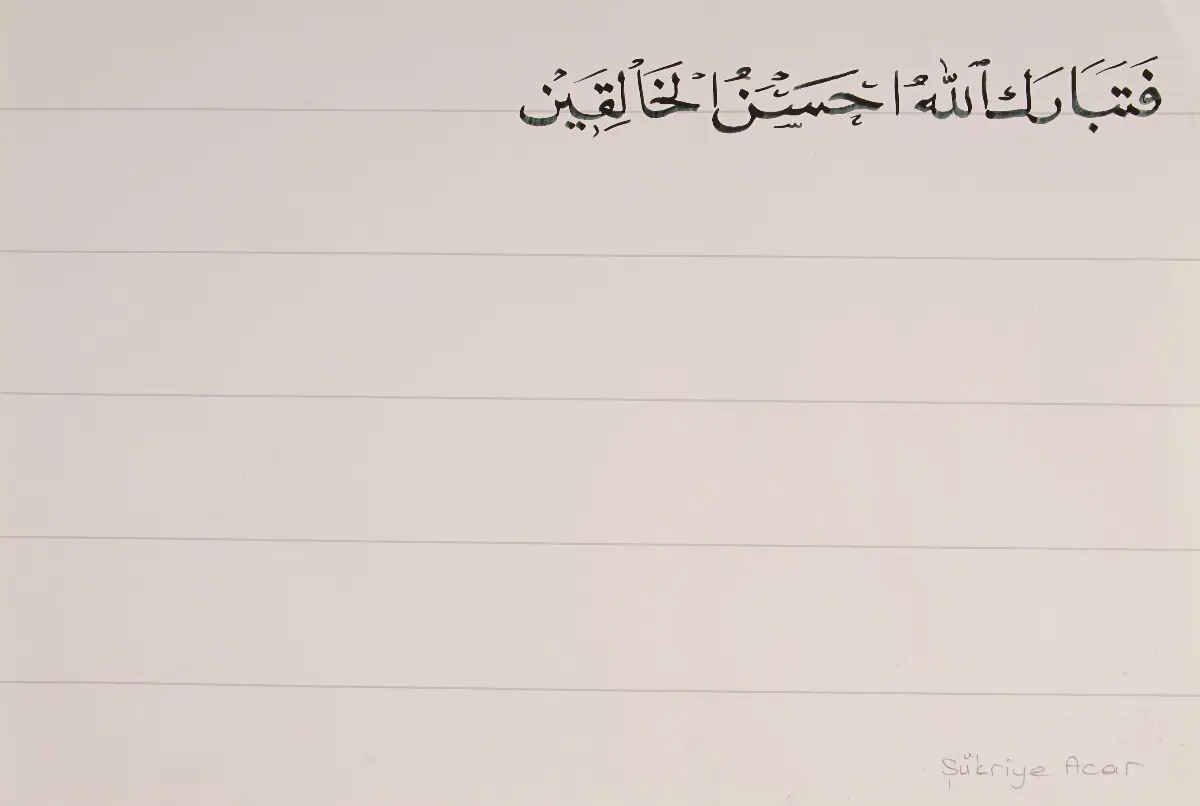 فَتَبَارَكَ ٱللّٰهُ اَحْسَنُ الْخَالِقٖينَ
Şükriye Acar